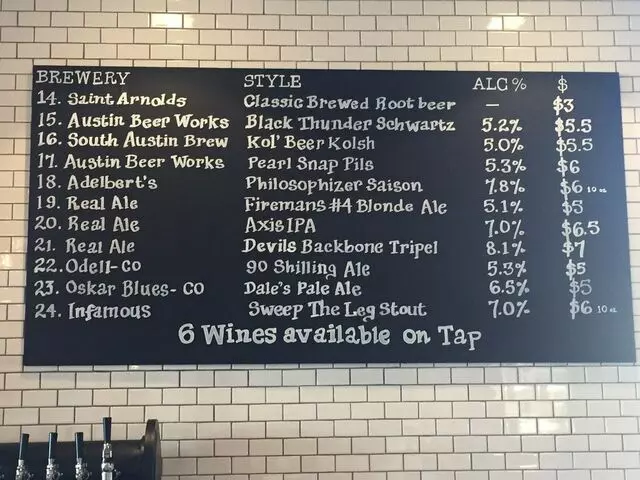 BREWERY STYLE ALC % $
14. Saint Arnolds Classic Brewed Root beer — $3
15. Austin Beer Works Black Thunder Schwartz 5.2% $5.5
16. South Austin Brew Kol' Beer Kolsh 5.0% $5.5
17. Austin Beer Works Pearl Snap Pils 5.3% $6
18. Adelbert's Philosophizer Saison 7.8% $6 10 oz
19. Real Ale Firemans #4 Blonde Ale 5.1% $5
20. Real Ale Axis IPA 7.0% $6.5
21. Real Ale Devils Backbone Tripel 8.1% $7
22. Odell-CO 90 Shilling Ale 5.3% $5
23. Oskar Blues-CO Dale's Pale Ale 6.5% $5
24. Infamous Sweep The Leg Stout 7.0% $6 10 oz
6 Wines available on Tap